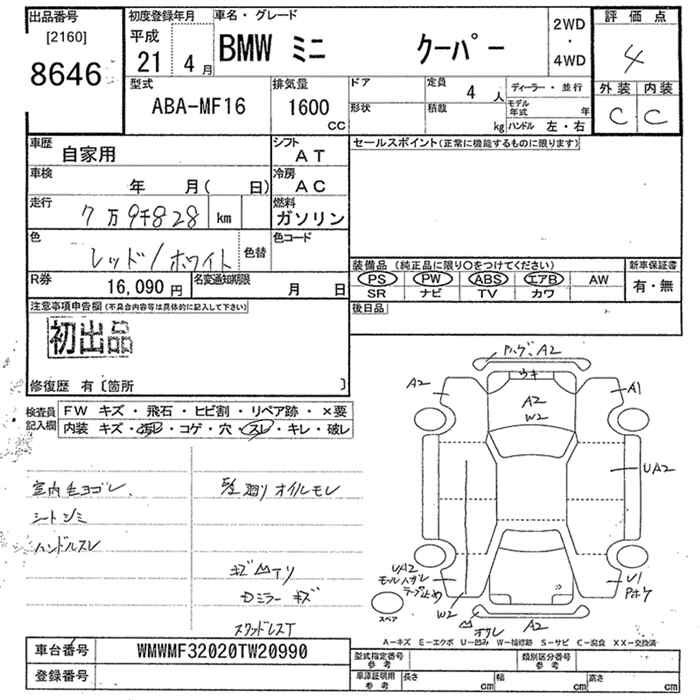 出品番号
[2160]
8646
初度登録年月
平成
21 4月
車名・グレード
BMW ミニ クーパー
2WD
・
4WD
評価点
4
外装 内装
C C
型式
ABA-MF16
排気量
1600
CC
ドア
形状
定員
4人
積載
kg
ディーラー・並行
モデル年式 年
ハンドル 左・右
車歴
自家用
シフト
AT
車検
年 月( 日)
冷房
AC
走行
7万9千828 km
燃料
ガソリン
色
レッド/ホワイト
色替
色コード
R券
16,090円
名変通知期限
月 日
セールスポイント(正常に機能するものに限ります)
装備品(純正品に限り○をつけてください)
PS PW ABS エアB AW
SR ナビ TV カワ
新車保証書
有・無
後日品
注意事項申告欄(不具合内容等は具体的に記入して下さい)
初出品
修復歴 有〔箇所 〕
検査員
記入欄
FW キズ・飛石・ヒビ割・リペア跡・×要
内装 キズ・汚レ・コゲ・穴・スレ・キレ・破レ
室内毛ヨゴレ
シートシミ
ハンドルスレ
オイルモレ
ミラーキズ
スタッドレスT
A2
ウキ
A2
W2
A2
A1
UA2
UA2
モールハガレ
テープ止め
W2
U1
A2
スペア
A-キズ E-エクボ U-凹み W-補修跡 S-サビ C-腐食 XX-交換済
車台番号
WMWMF32020TW20990
登録番号
型式指定番号
参考
類別区分番号
参考
車庫証明用
参考
長さ cm
幅 cm
高さ cm